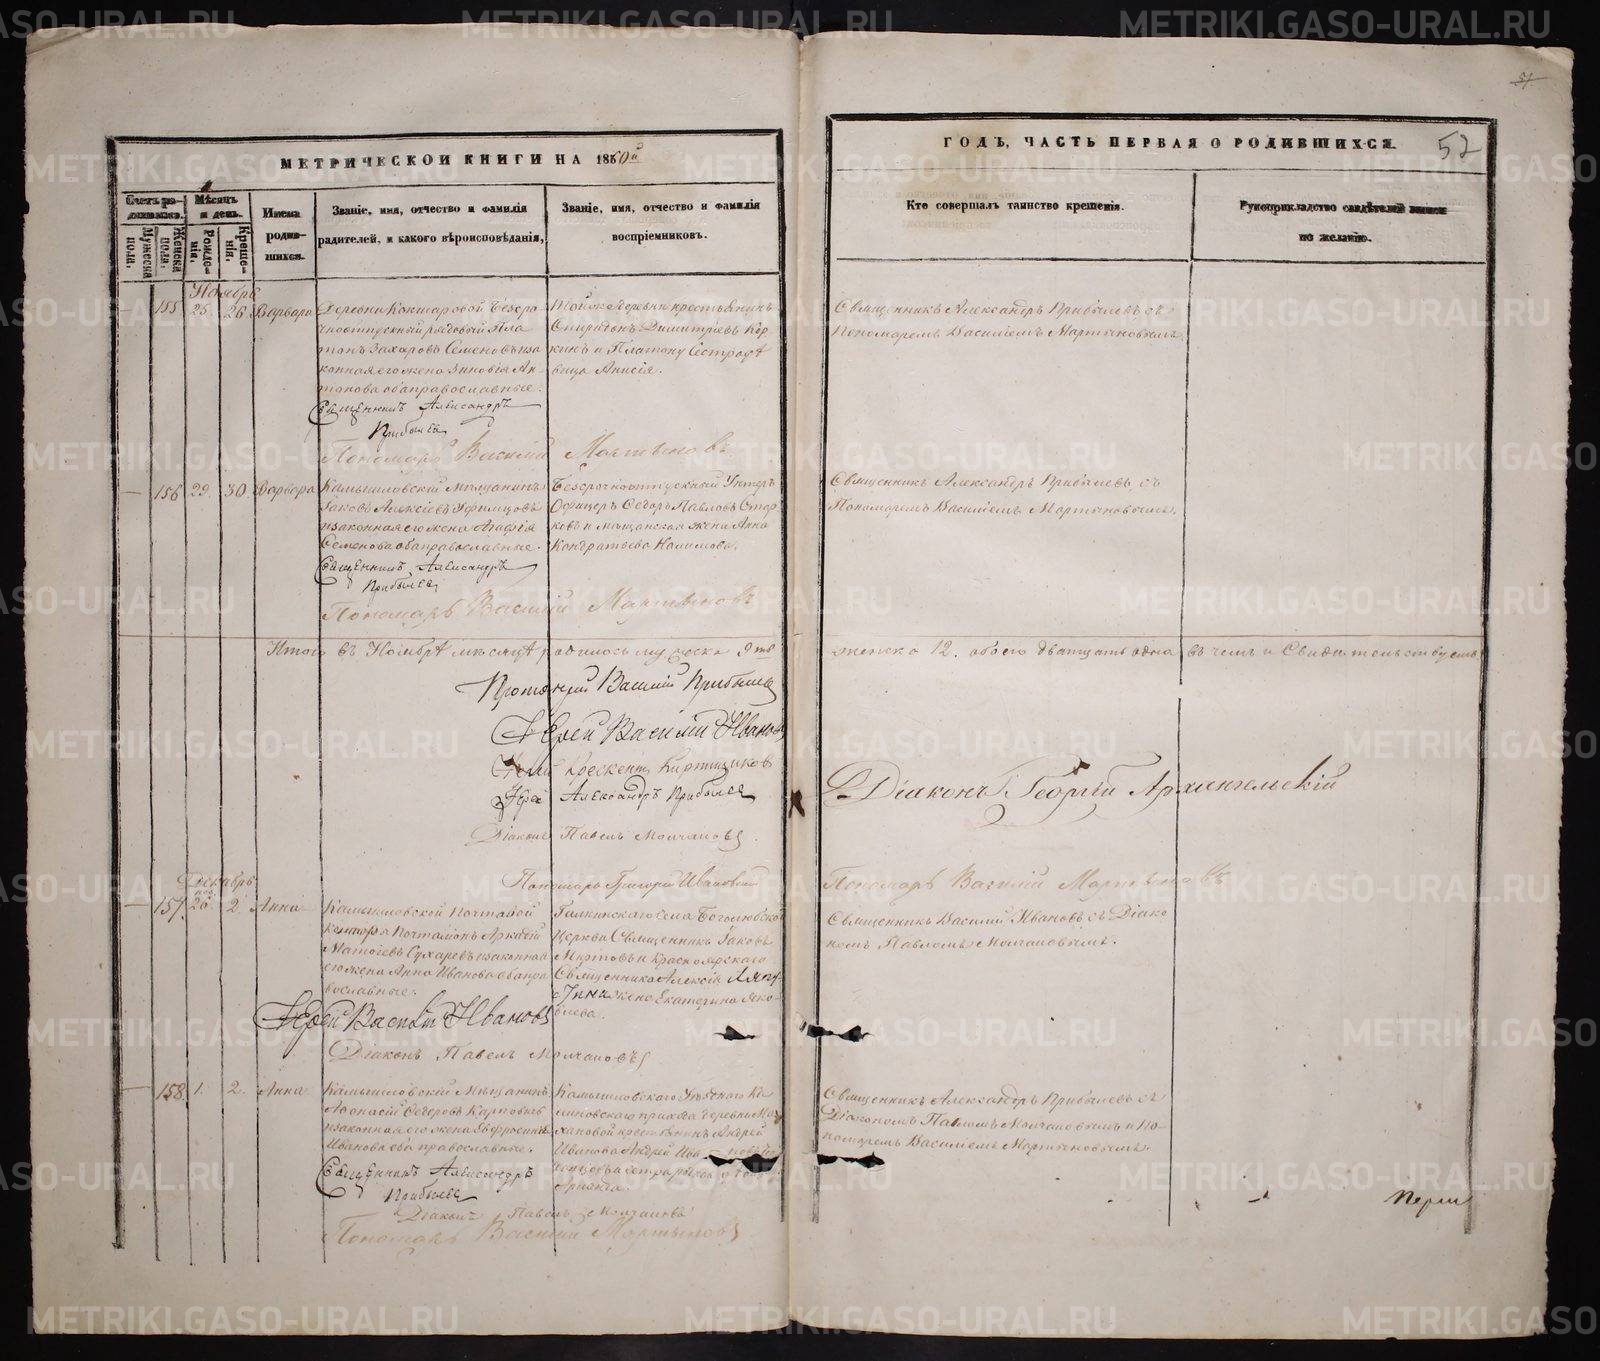 МЕТРИЧЕСКОЙ КНИГИ НА 1860й
ГОДЪ, ЧАСТЬ ПЕРВАЯ О РОДИВШИХСЯ.
57
52
Счетъ родившихся.
Мѣсяцъ и день.
Мужеска пола.
Женска пола.
Рожденія.
Крещенія.
Имена родившихся.
Званіе, имя, отчество и фамилія
радителей, и какого вѣроисповѣданія,
Званіе, имя, отчество и фамилія
воспріемниковъ.
Кто совершалъ таинство крещенія.
Рукоприкладство свидѣтелей записи
по желанію.
Ноябрь
155 25. 26. Варвара
Деревни Кокшаровой Безсро
чноотпускный рядовый Пла
тонъ Захаровъ Семеновъ и за
конная его жена Зиновія Ан-
тонова оба православные.
Священникъ Александръ
Прибылев
Пономарь Василій Мартыновъ
Тойже деревни крестьянинъ
Спиридонъ Димитріевъ
и Платону Сестра
вица Анисія.
Священникъ Александръ Прибылевъ съ
Пономаремъ Василіемъ Мартыновымъ.
156 29. 30. Варвара
Камышловскій мѣщанинъ
Іаковъ Алексіевъ Уфимцовъ
и законная его жена Агафія
Семенова оба православные.
Священникъ Александръ
Прибылев
Пономарь Василій Мартыновъ
Безсрочноотпускный Унтеръ
Офицеръ Ѳедоръ Павловъ
и мѣщанская жена Анна
Кондратьева Налимова.
Священникъ Александръ Прибылевъ съ
Пономаремъ Василіемъ Мартыновымъ.
Итого въ Ноябрѣ мѣсяцѣ родилось мужеска 9ть
женска 12. обоего дватцать одна въ чемъ и Свидѣтельствуемъ
Протоіерей Василій Прибылев
Іерей Василій Иванов
Іерей Крескентъ Кирпищиков
Іерей Александръ Прибылев
Діаконъ Георгій Архангельскій
Діаконъ Павелъ Молчановъ.
Пономарь Григорій Ивановскій
Пономарь Василій Мартыновъ
Декабрь
ноя.
157. 26. 2. Анна
Камышловской Почтовой
конторы Почталіонъ Аркадій
Матѳіевъ Сухаревъ и законная
его жена Анна Иванова оба пра
вославные.
Іерей Василій Ивановъ
Діаконъ Павелъ Молчановъ
Галкинскаго села Боголюбской
Церкви Священникъ Іаковъ
Миртовъ и Красноярскаго
Священника Алексія Ляпу
стина жена Екатерина Яко-
влева.
Священникъ Василій Ивановъ съ Діако
номъ Павломъ Молчановымъ.
158. 1. 2. Анна
Камышловскій Мѣщанинъ
Аѳанасій Ѳедоровъ Карповъ
и законная его жена Евфросинія
Иванова оба православные.
Священникъ Александръ
Прибылев
Діаконъ Павелъ Молчановъ
Пономарь Василій Мартыновъ
Камышловскаго Уѣзднаго Ка
линовскаго прихода деревни
крестьянинъ Андрей
Ивановъ Андрей
Священникъ Александръ Прибылевъ съ
Діакономъ Павломъ Молчановымъ и По-
номаремъ Василіемъ Мартыновымъ.
METRIKI.GASO-URAL.RU